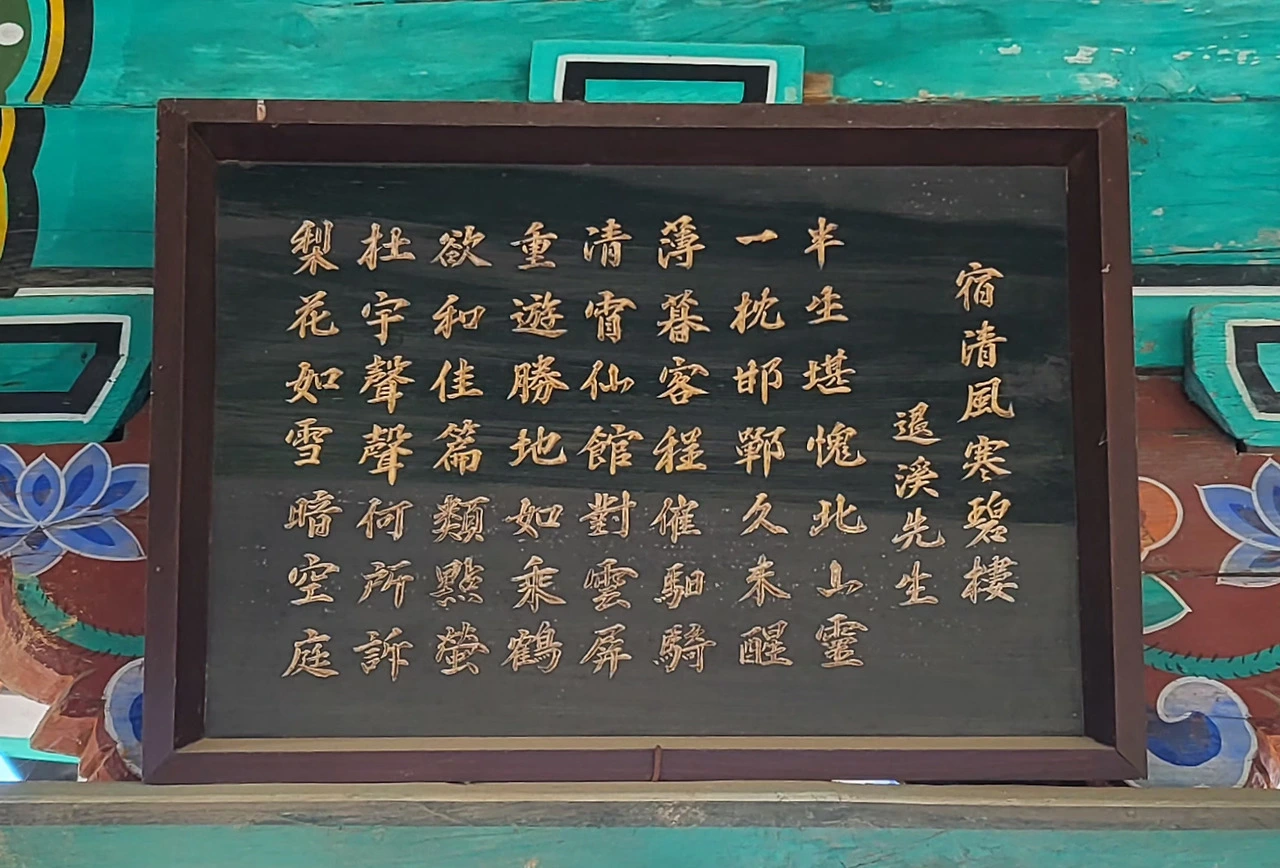 宿清風寒碧樓
退溪先生
半生堪愧北山靈
一枕邯鄲久未醒
薄暮客程催馹騎
清宵仙館對雲屏
重遊勝地如乘鶴
欲和佳篇類點螢
杜宇聲聲何所訴
梨花如雪暗空庭